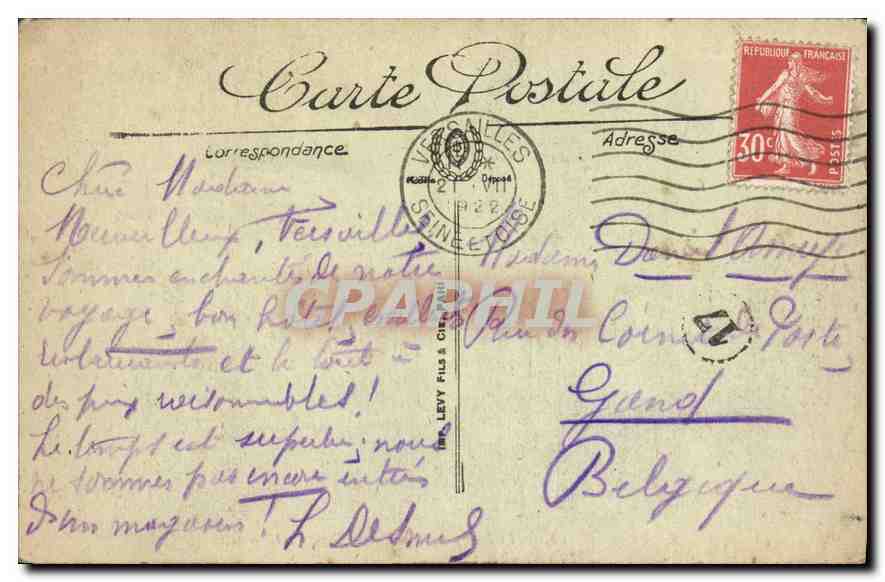 Carte Postale
Correspondance
Adresse
REPUBLIQUE FRANCAISE
30c
POSTES
VERSAILLES
*
21 VII
1922
SEINE ET OISE
Modèle Déposé
Chère Madame
Merveilleux, Versailles
Sommes enchantés de notre
voyage, bon hôtel,
restaurants et le tout à
des prix raisonnables!
Le temps est superbe, nous
ne sommes pas encore entrés
dans un magasin! L. Desmet
IMP. LEVY FILS & CIE, PARIS
CPAPHIL
Madame
Rue du Coin de la Poste
17
Gand
Belgique